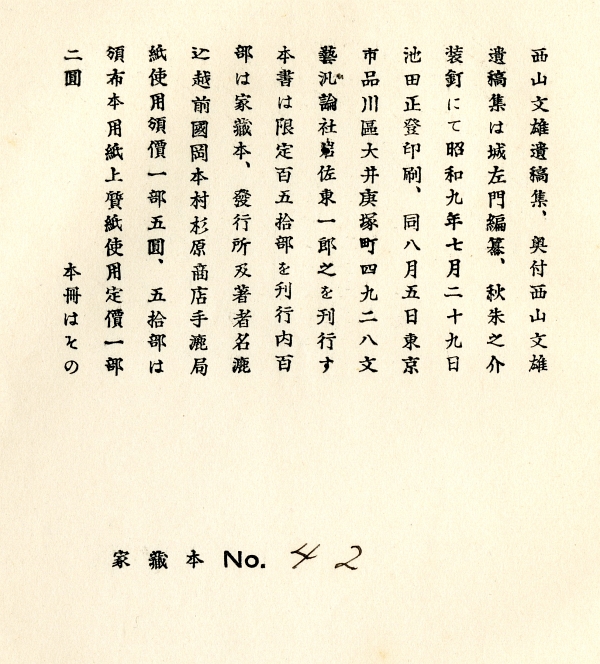 西山文雄遺稿集、奥付西山文雄
遺稿集は城左門編纂、秋朱之介
装釘にて昭和九年七月二十九日
池田正登印刷、同八月五日東京
市品川區大井庚塚町四九二八文
藝汎論社岩佐東一郎之を刊行す
本書は限定百五拾部を刊行内百
部は家藏本、發行所及著者名漉
込越前國岡本村杉原商店手漉局
紙使用頒價一部五圓、五拾部は
頒布本用紙上質紙使用定價一部
二圓　本冊はその
家藏本 No. 42